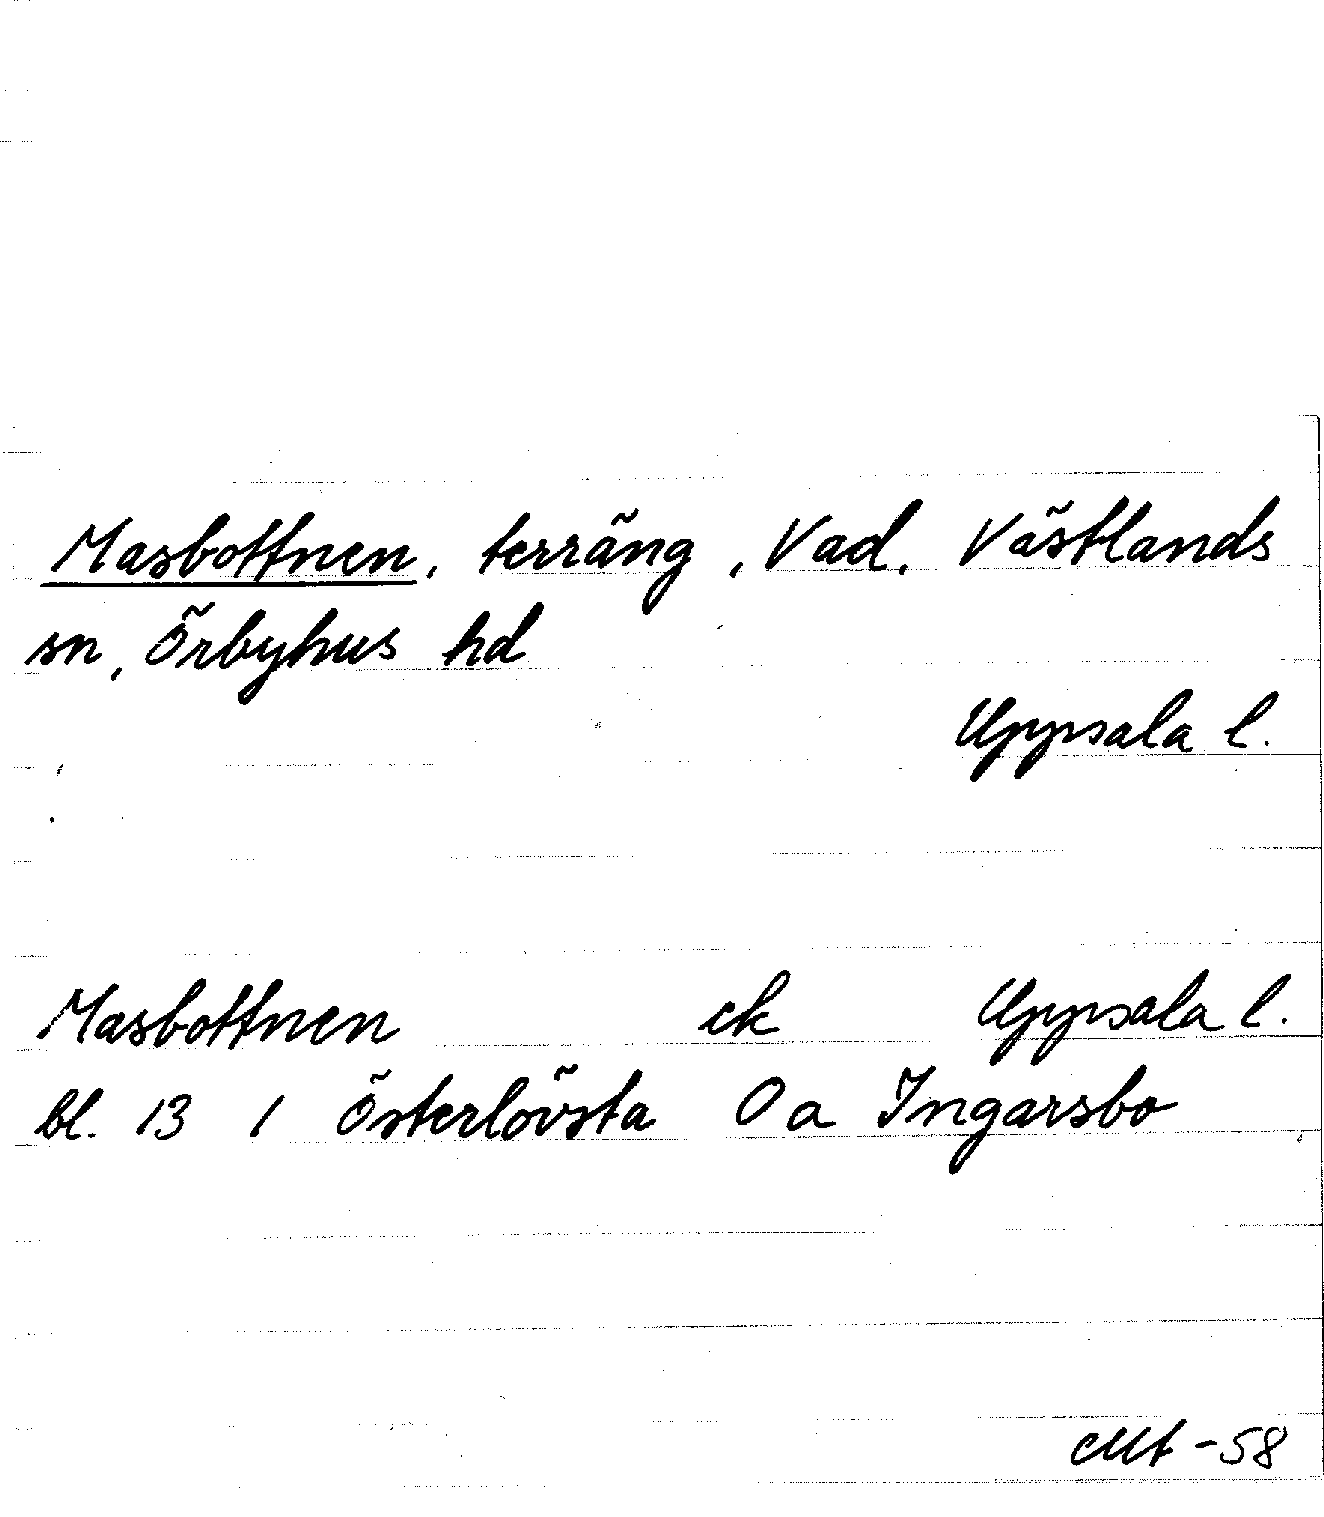 Masbottnen, terräng, Vad. Västlands
sn, Örbyhus hd
Uppsala l.
Masbottnen ek Uppsala l.
bl. 13 1 Österlövsta O a Ingarsbo
-58